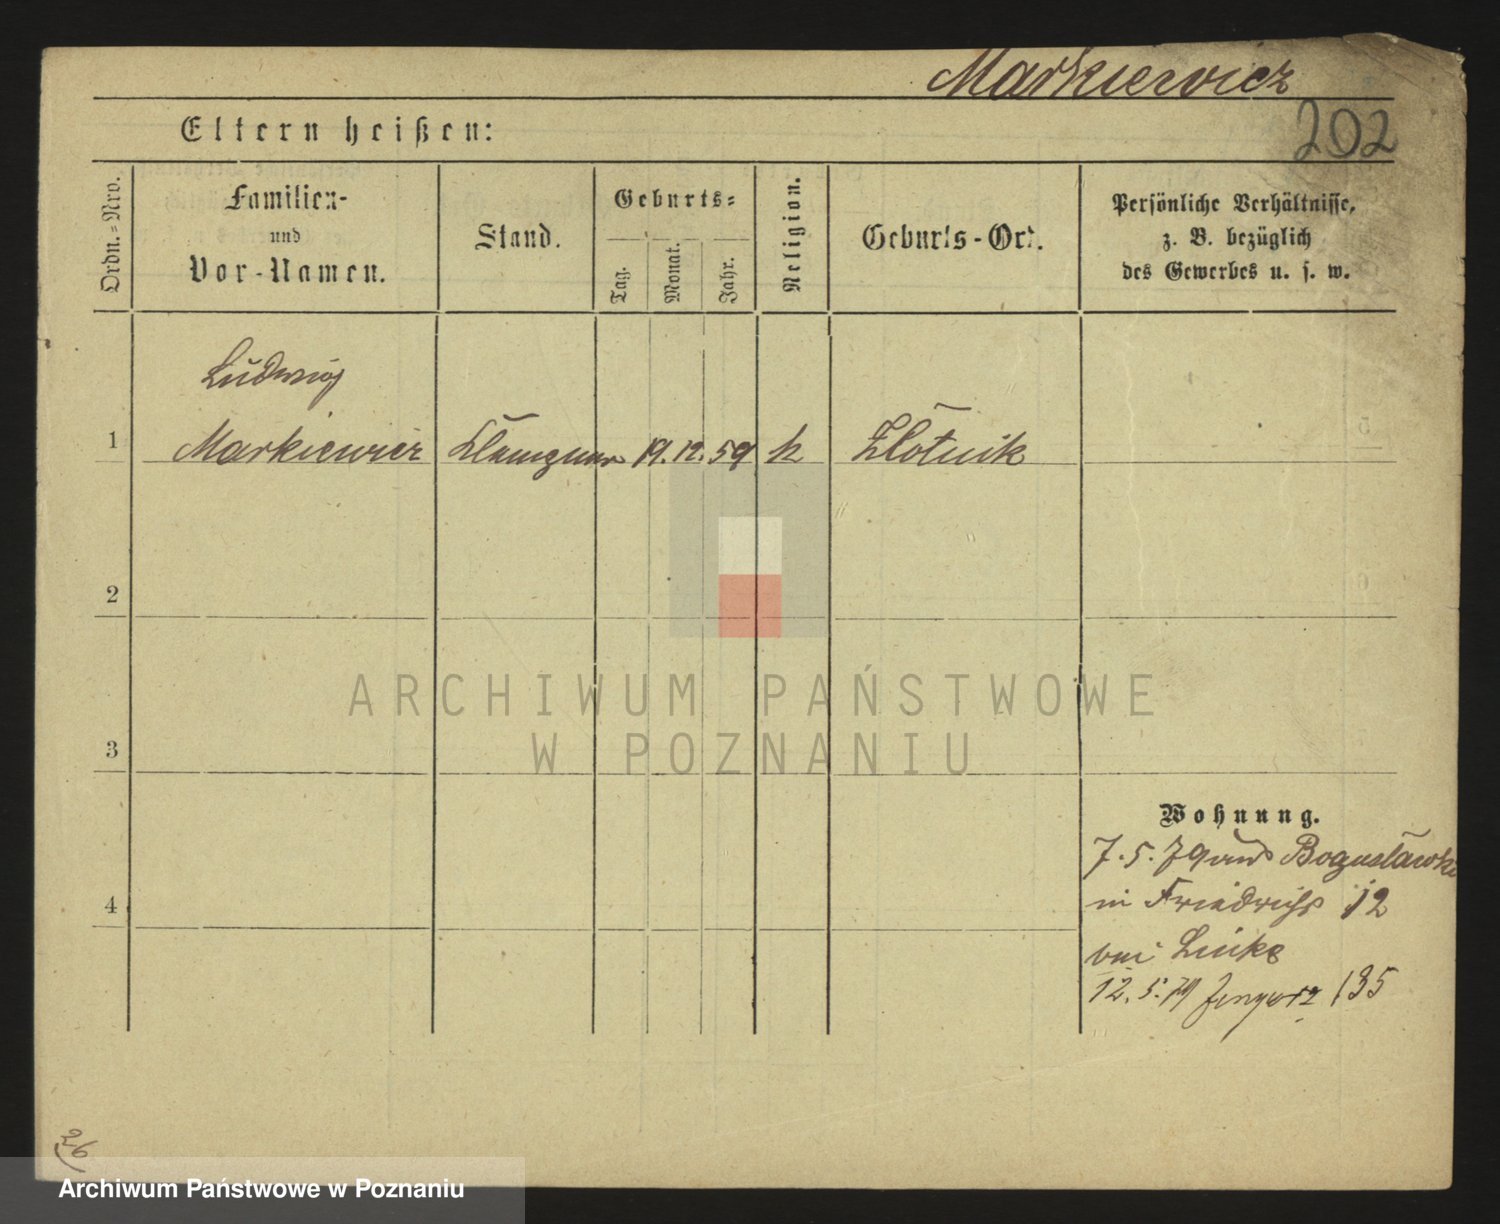 Markiewicz
202
Eltern heißen:
Ordn.=Nro.
Familien-
und
Vor-Namen.
Stand.
Geburts=
Tag.
Monat.
Jahr.
Religion.
Geburts-Ort.
Persönliche Verhältnisse,
z. B. bezüglich
des Gewerbes u. s. w.
Ludwig
1 Markiewicz 19. 12. 59 k Złotnik
2
3
4
ARCHIWUM PAŃSTWOWE
W POZNANIU
Wohnung.
7. 5. 79 aus Boguslawki
in Friedrichs 12
bei Linke
12. 5. 79 135
26
Archiwum Państwowe w Poznaniu